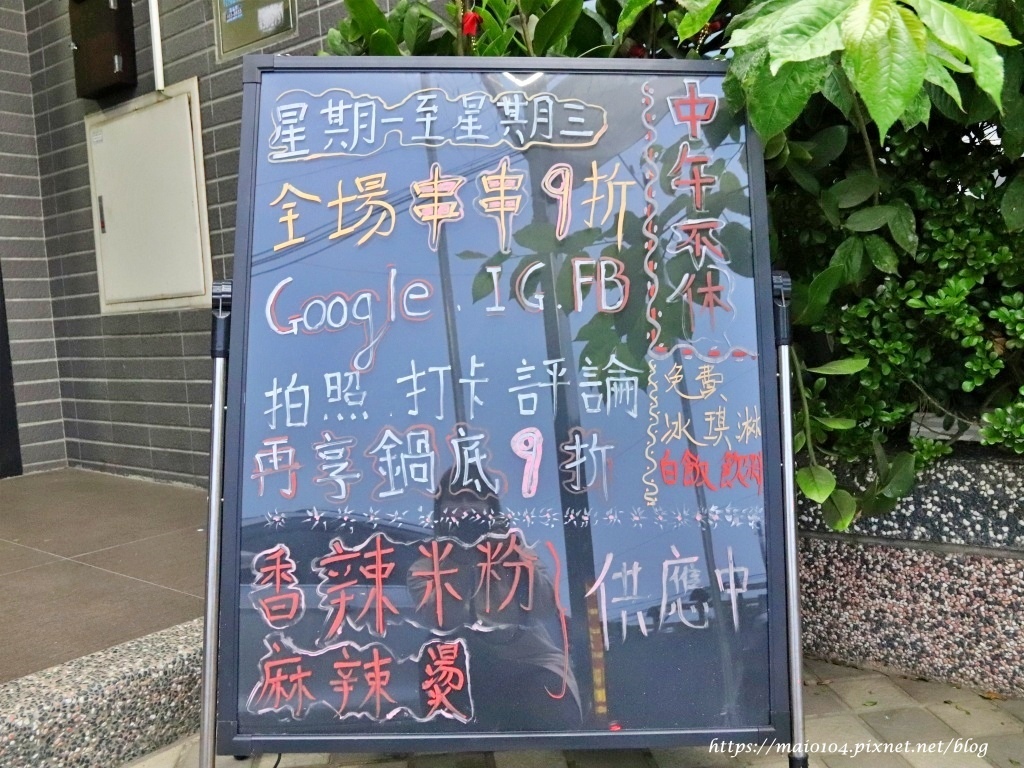 星期一至星期三
全場串串9折
Google.IG.FB
拍照.打卡評論
再享鍋底9折
中午不休
免費
冰琪淋
白飯 飲料
香辣米粉
麻辣燙
供應中
https://maio104.pixnet.net/blog